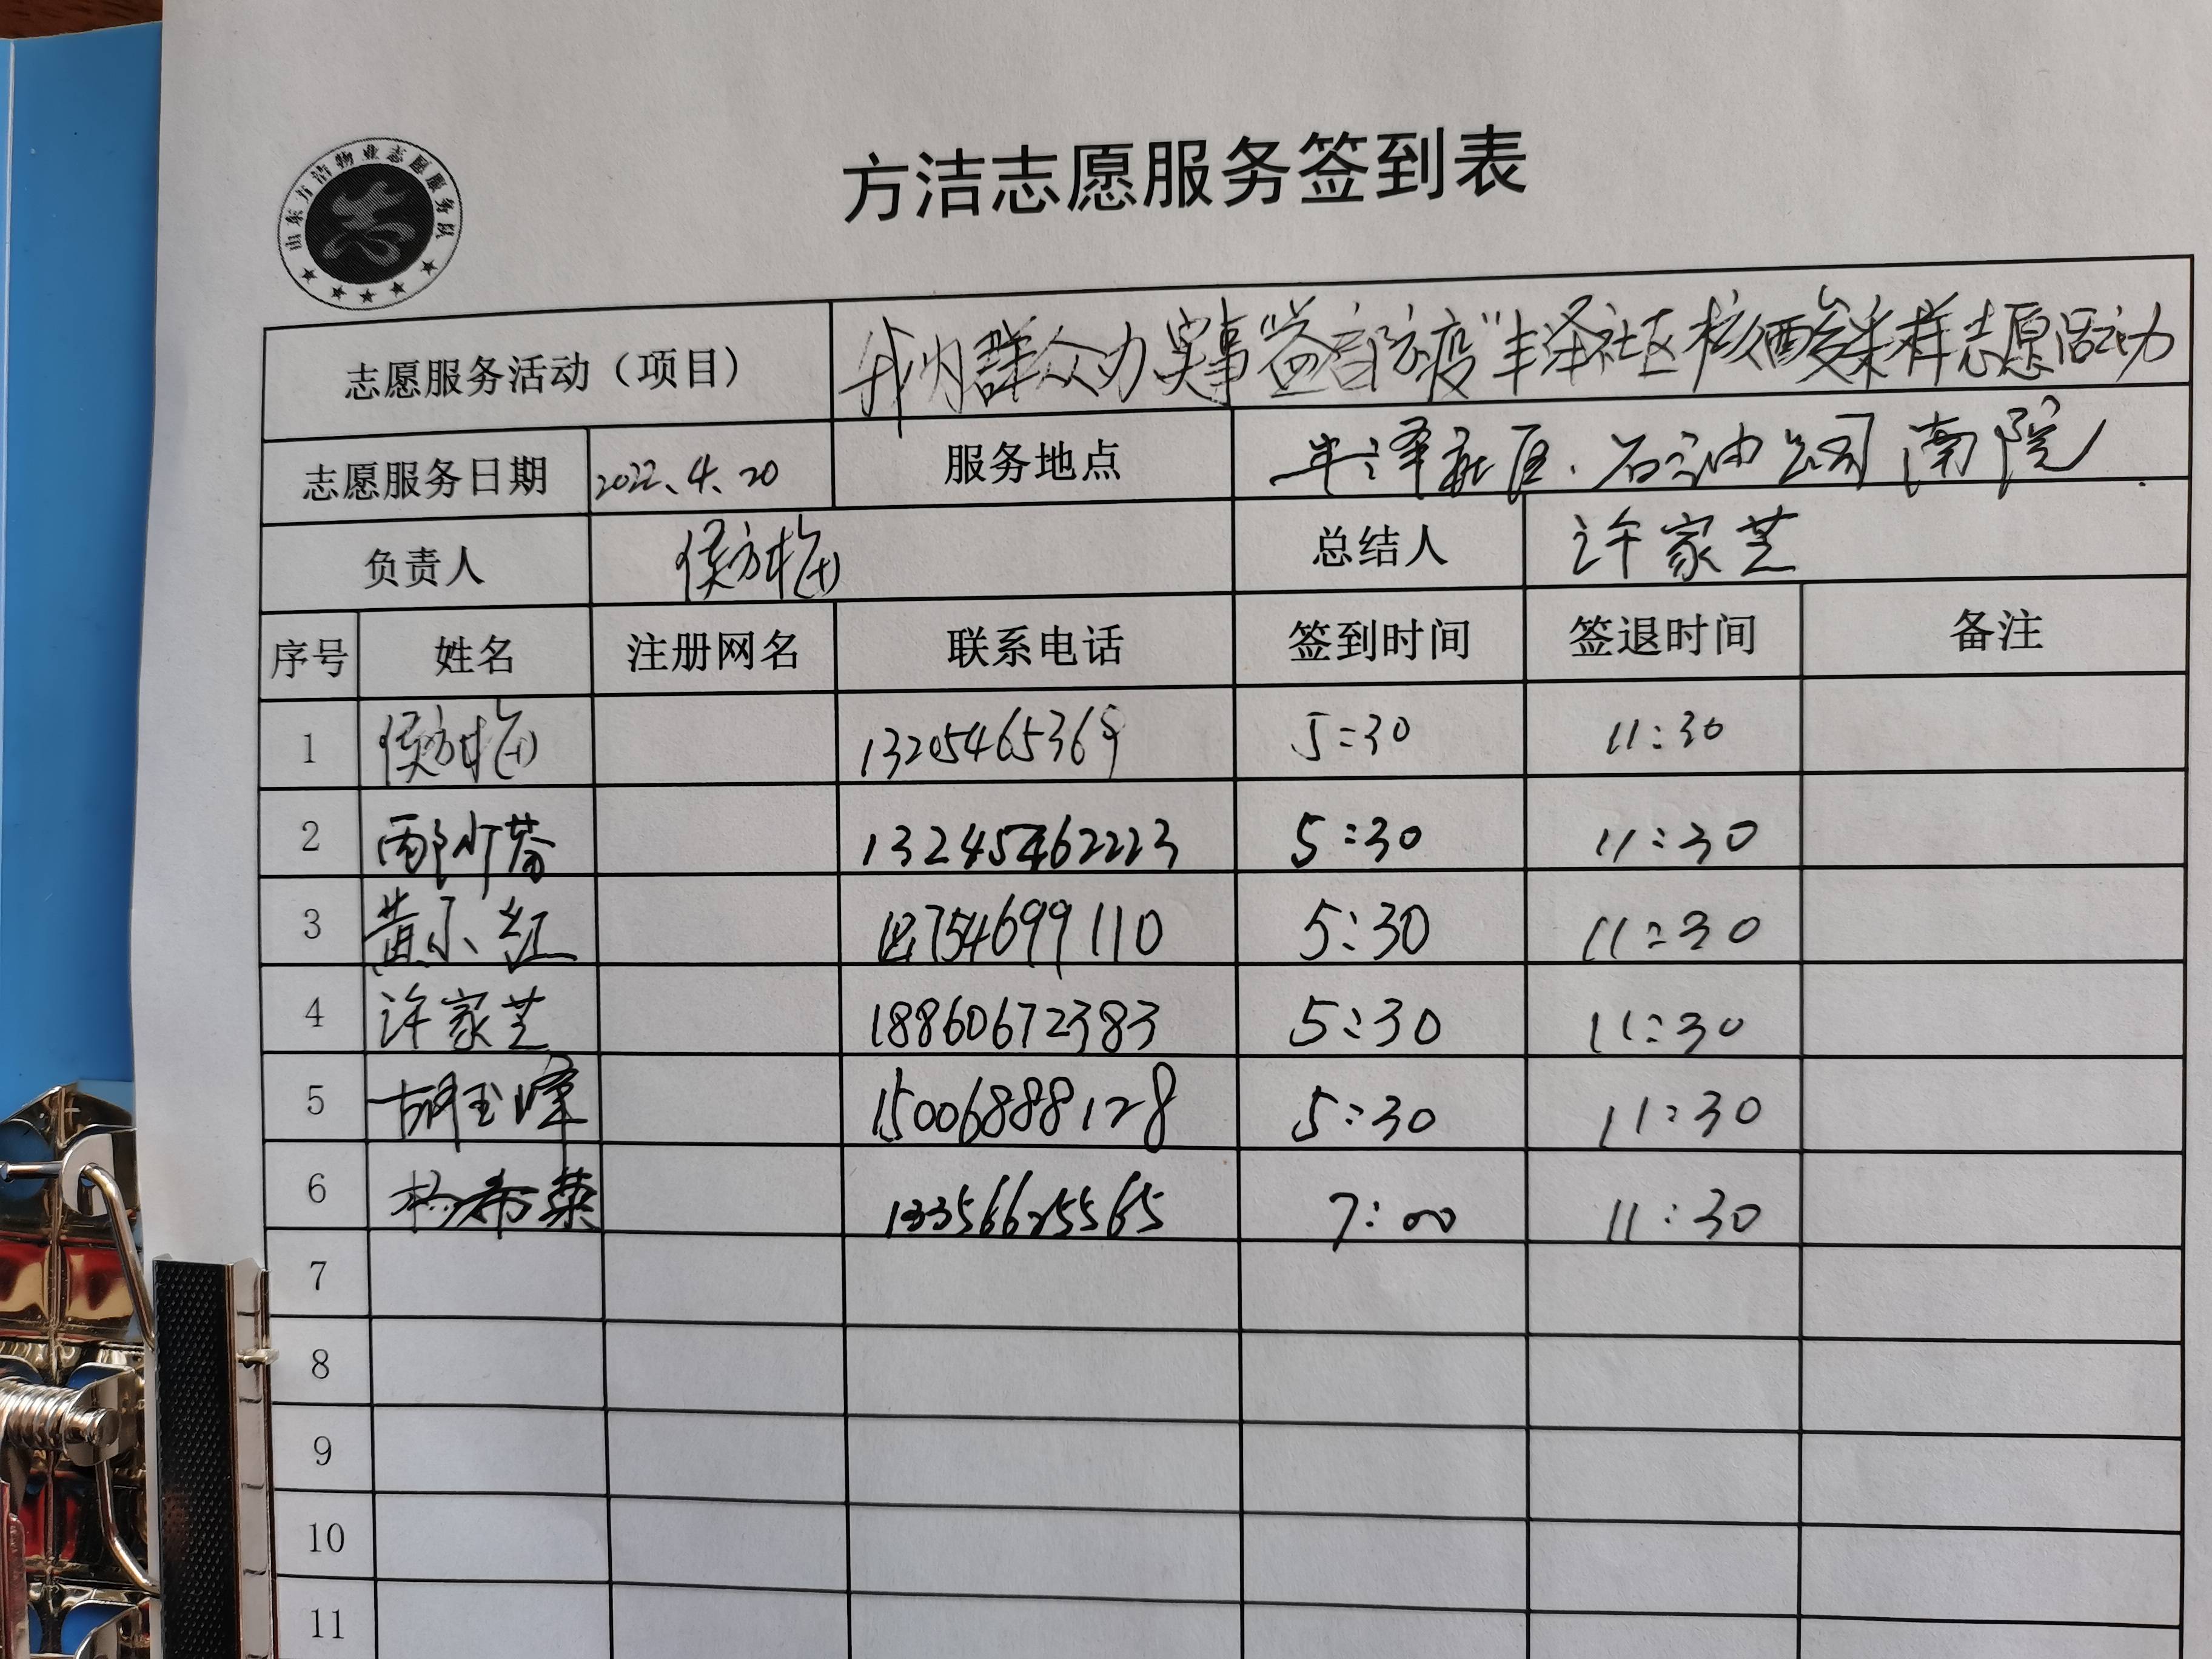 山东方洁物业志愿服务队
方洁志愿服务签到表
志愿服务活动（项目） 我为群众办实事"益首防疫"丰泽社区核酸采样志愿活动
志愿服务日期 2022、4、20 服务地点 丰泽社区、石油公司南院
负责人 侯方梅 总结人 许家芝
序号 姓名 注册网名 联系电话 签到时间 签退时间 备注
1 侯方梅 1320546536 5:30 11:30
2 5:30 11:30
3 黄小红 754699110 5:30 11:30
4 许家芝 18860672383 5:30 11:30
5 胡玉峰 15006888128 5:30 11:30
6 杨希荣 13356625565 7:00 11:30
7
8
9
10
11